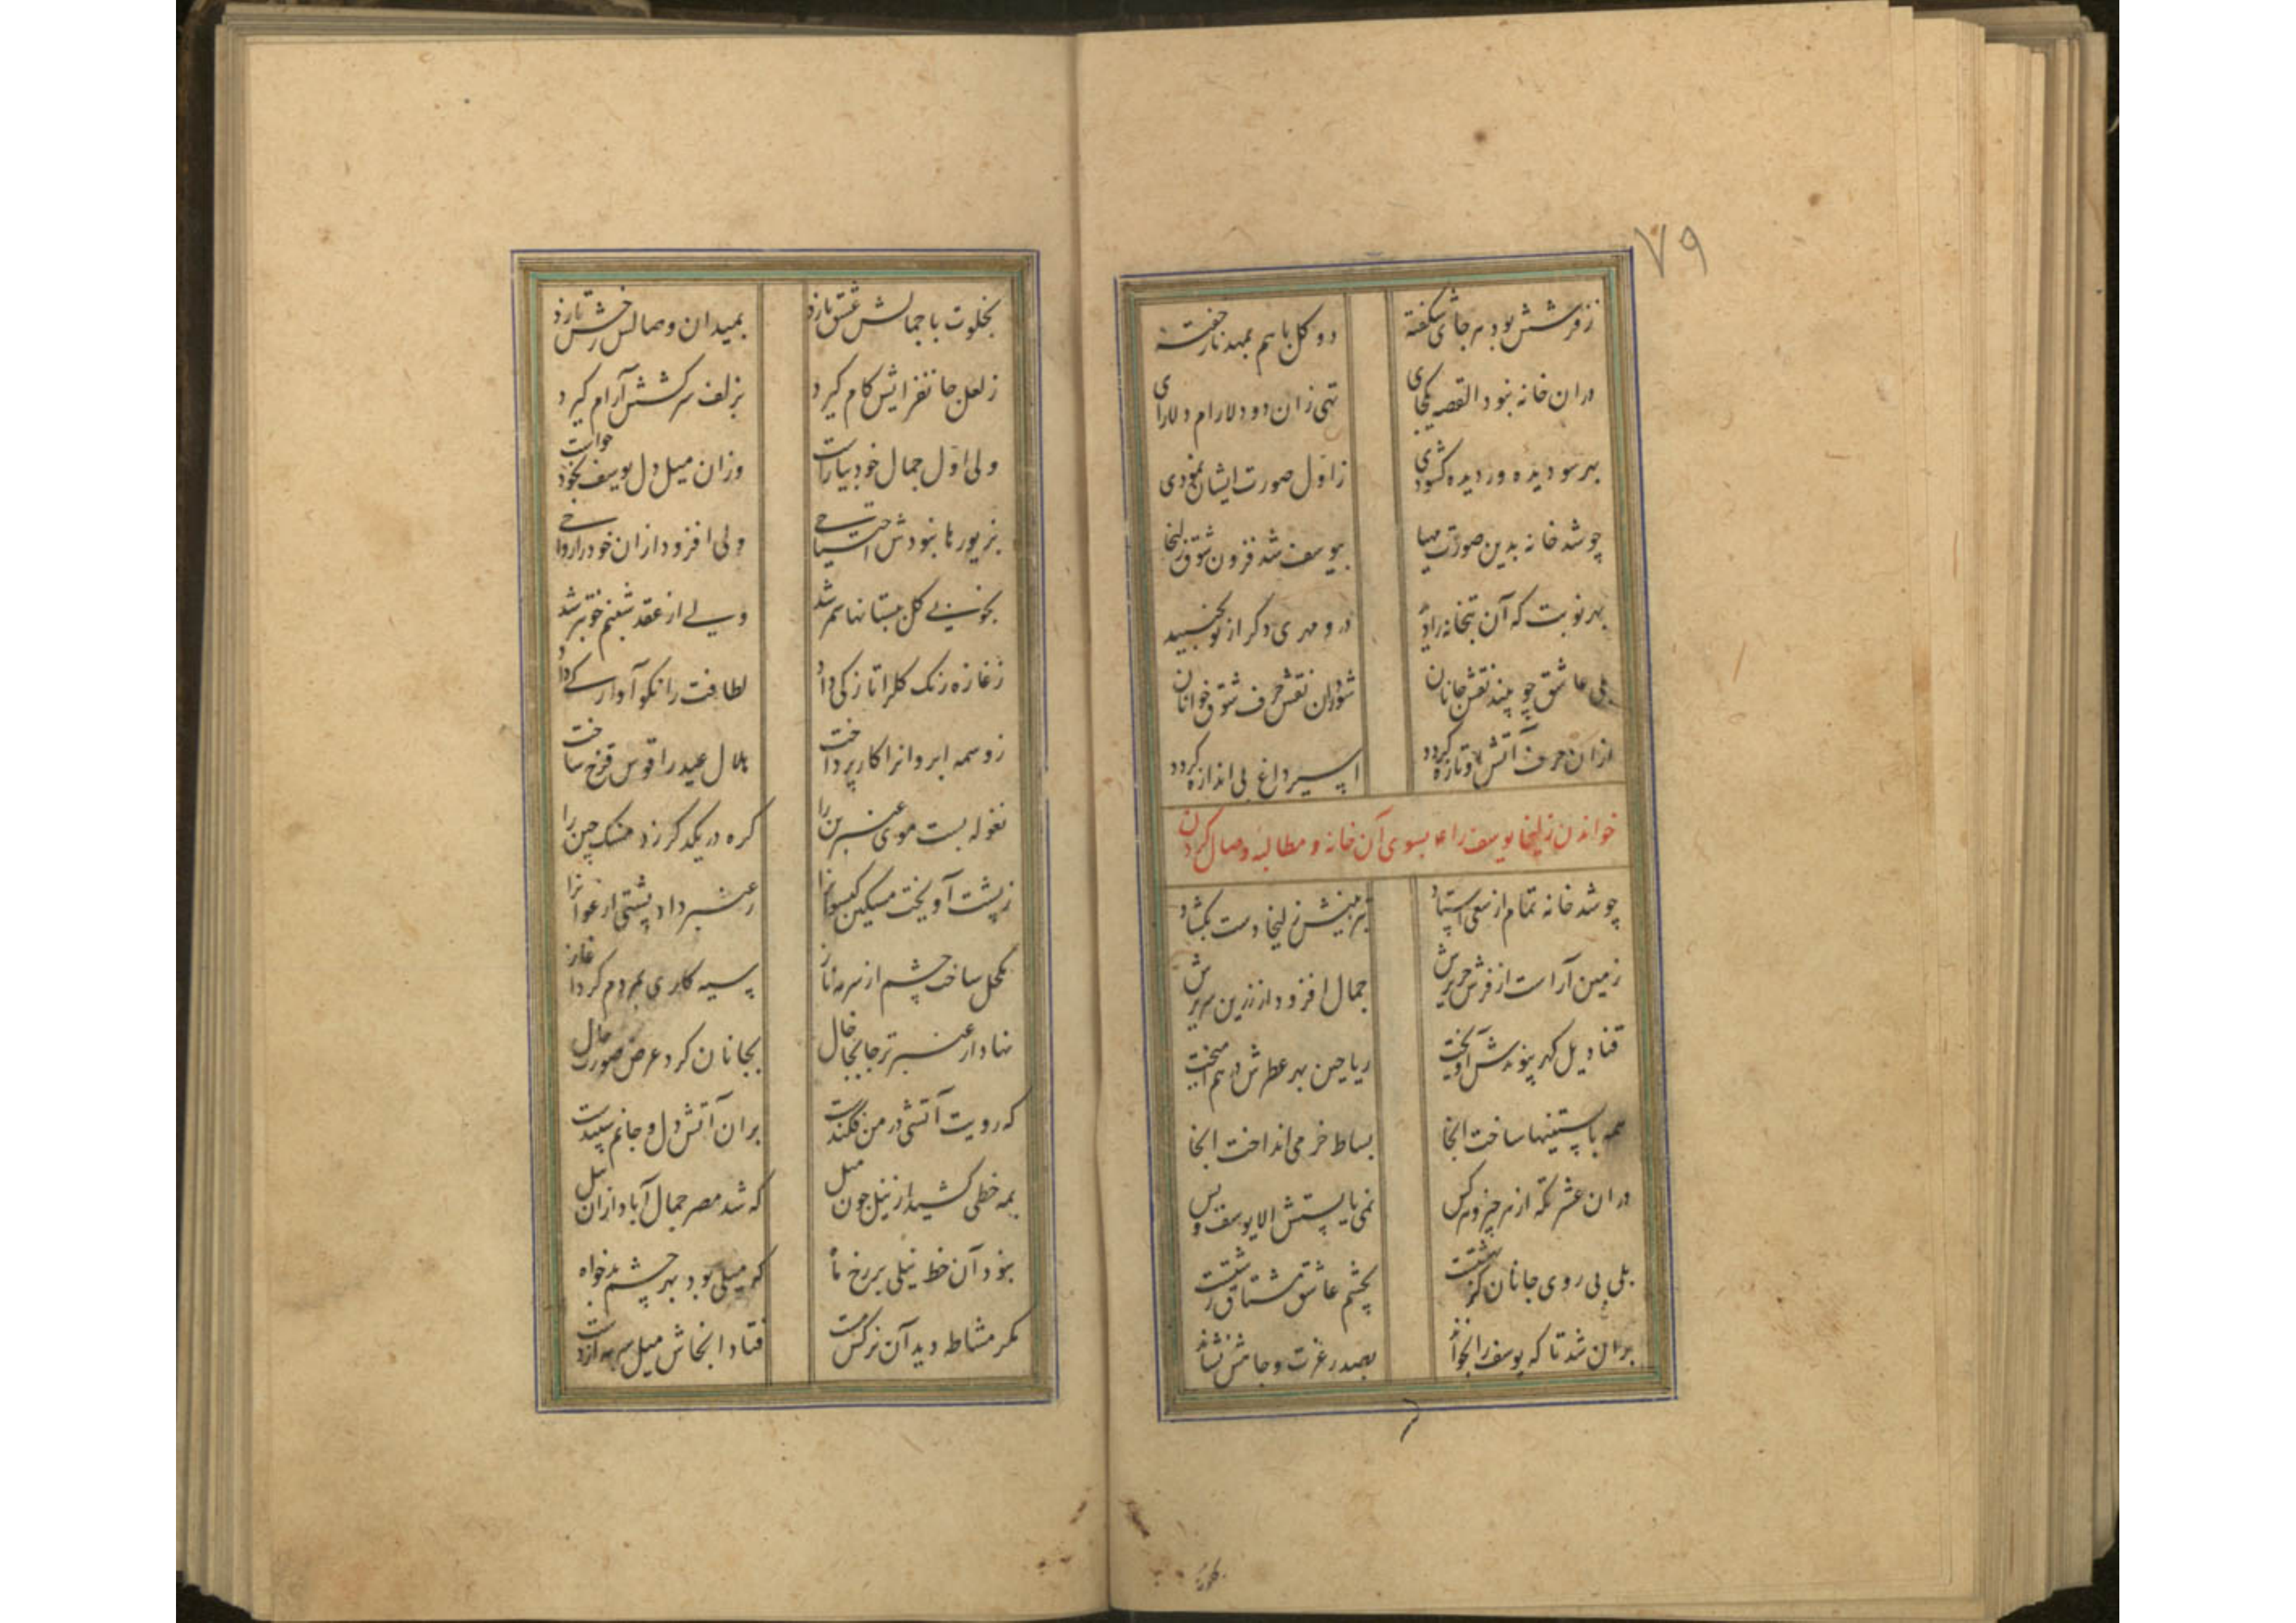 ٧٩
ز فرشش بود هر جائی شکفته دو گل با هم بمهد ناز خفته
دران خانه نبود القصه یکجای تهی زان دو دلارام دلارای
بهر سو دیده ور دیده کشودی ز اول صورت ایشان نمودی
چو شد خانه بدین صورت مهیا بیوسف شد فزون شوق زلیخا
بهر نوبت که آن بتخانه را دید درو مهری دگر از نو بجنبید
بلی عاشق چو بیند نقش جانان شود زان نقش حرف شوق خوانان
ازان حرف آتش او تازه گردد اسیر داغ بی اندازه گردد
خواندن زلیخا یوسف را ع بسوی آن خانه و مطالبه وصال کردن
چو شد خانه تمام از سعی استاد بتزیینش زلیخا دست بکشاد
زمین آراست از فرش حریرش جمال افزود از زرین سریرش
قنادیل گهر پیوندش آویخت ریاحین بهر عطرش در هم آمیخت
همه بایستنیها ساخت آنجا بساط خرمی انداخت آنجا
دران عشرتگه از هر چیز و هر کس نمی بایستش الا یوسف و بس
بلی بی روی جانان گر بهشتست بچشم عاشق مشتاق زشتست
بران شد تا که یوسف را بخواند بصدر عزت و جاهش نشاند
بخلوت
بخلوت با جمالش عشق بازد بمیدان وصالش رخش تازد
ز لعل جانفزایش کام گیرد بزلف سرکشش آرام گیرد
ولی اول جمال خود بیاراست وزان میل دل یوسف بخود خواست
بزیورها نبودش احتیاجی ولی افزود ازان خود را رواجی
بخوبی گل ببستانها سمر شد ولی از عقد شبنم خوبتر شد
ز غازه رنگ گل را تازگی داد لطافت را نکو آوازگی داد
ز وسمه ابروانرا کار پرداخت هلال عید را قوس قزح ساخت
نغوله بست موی عنبرین را گره در یکدگر زد مشک چین را
ز پشت آویخت مشکین گیسوانرا ز عنبر داد پشتی ارغوانرا
مکحل ساخت چشم از سرمه ناز سیه کاری بمردم کرد آغاز
نهاد از عنبر تر جابجا خال بجانان کرد عرض صورت حال
که رویت آتشی در من فکندست بران آتش دل و جانم سپندست
بمه خطی کشید از نیل چون میل که شد مصر جمال آباد ازان نیل
نبود آن خط نیلی بر رخ ماه که میلی بود بهر چشم بدخواه
مگر مشاطه دید آن نرگس مست فتاد آنجاش میل سرمه از دست